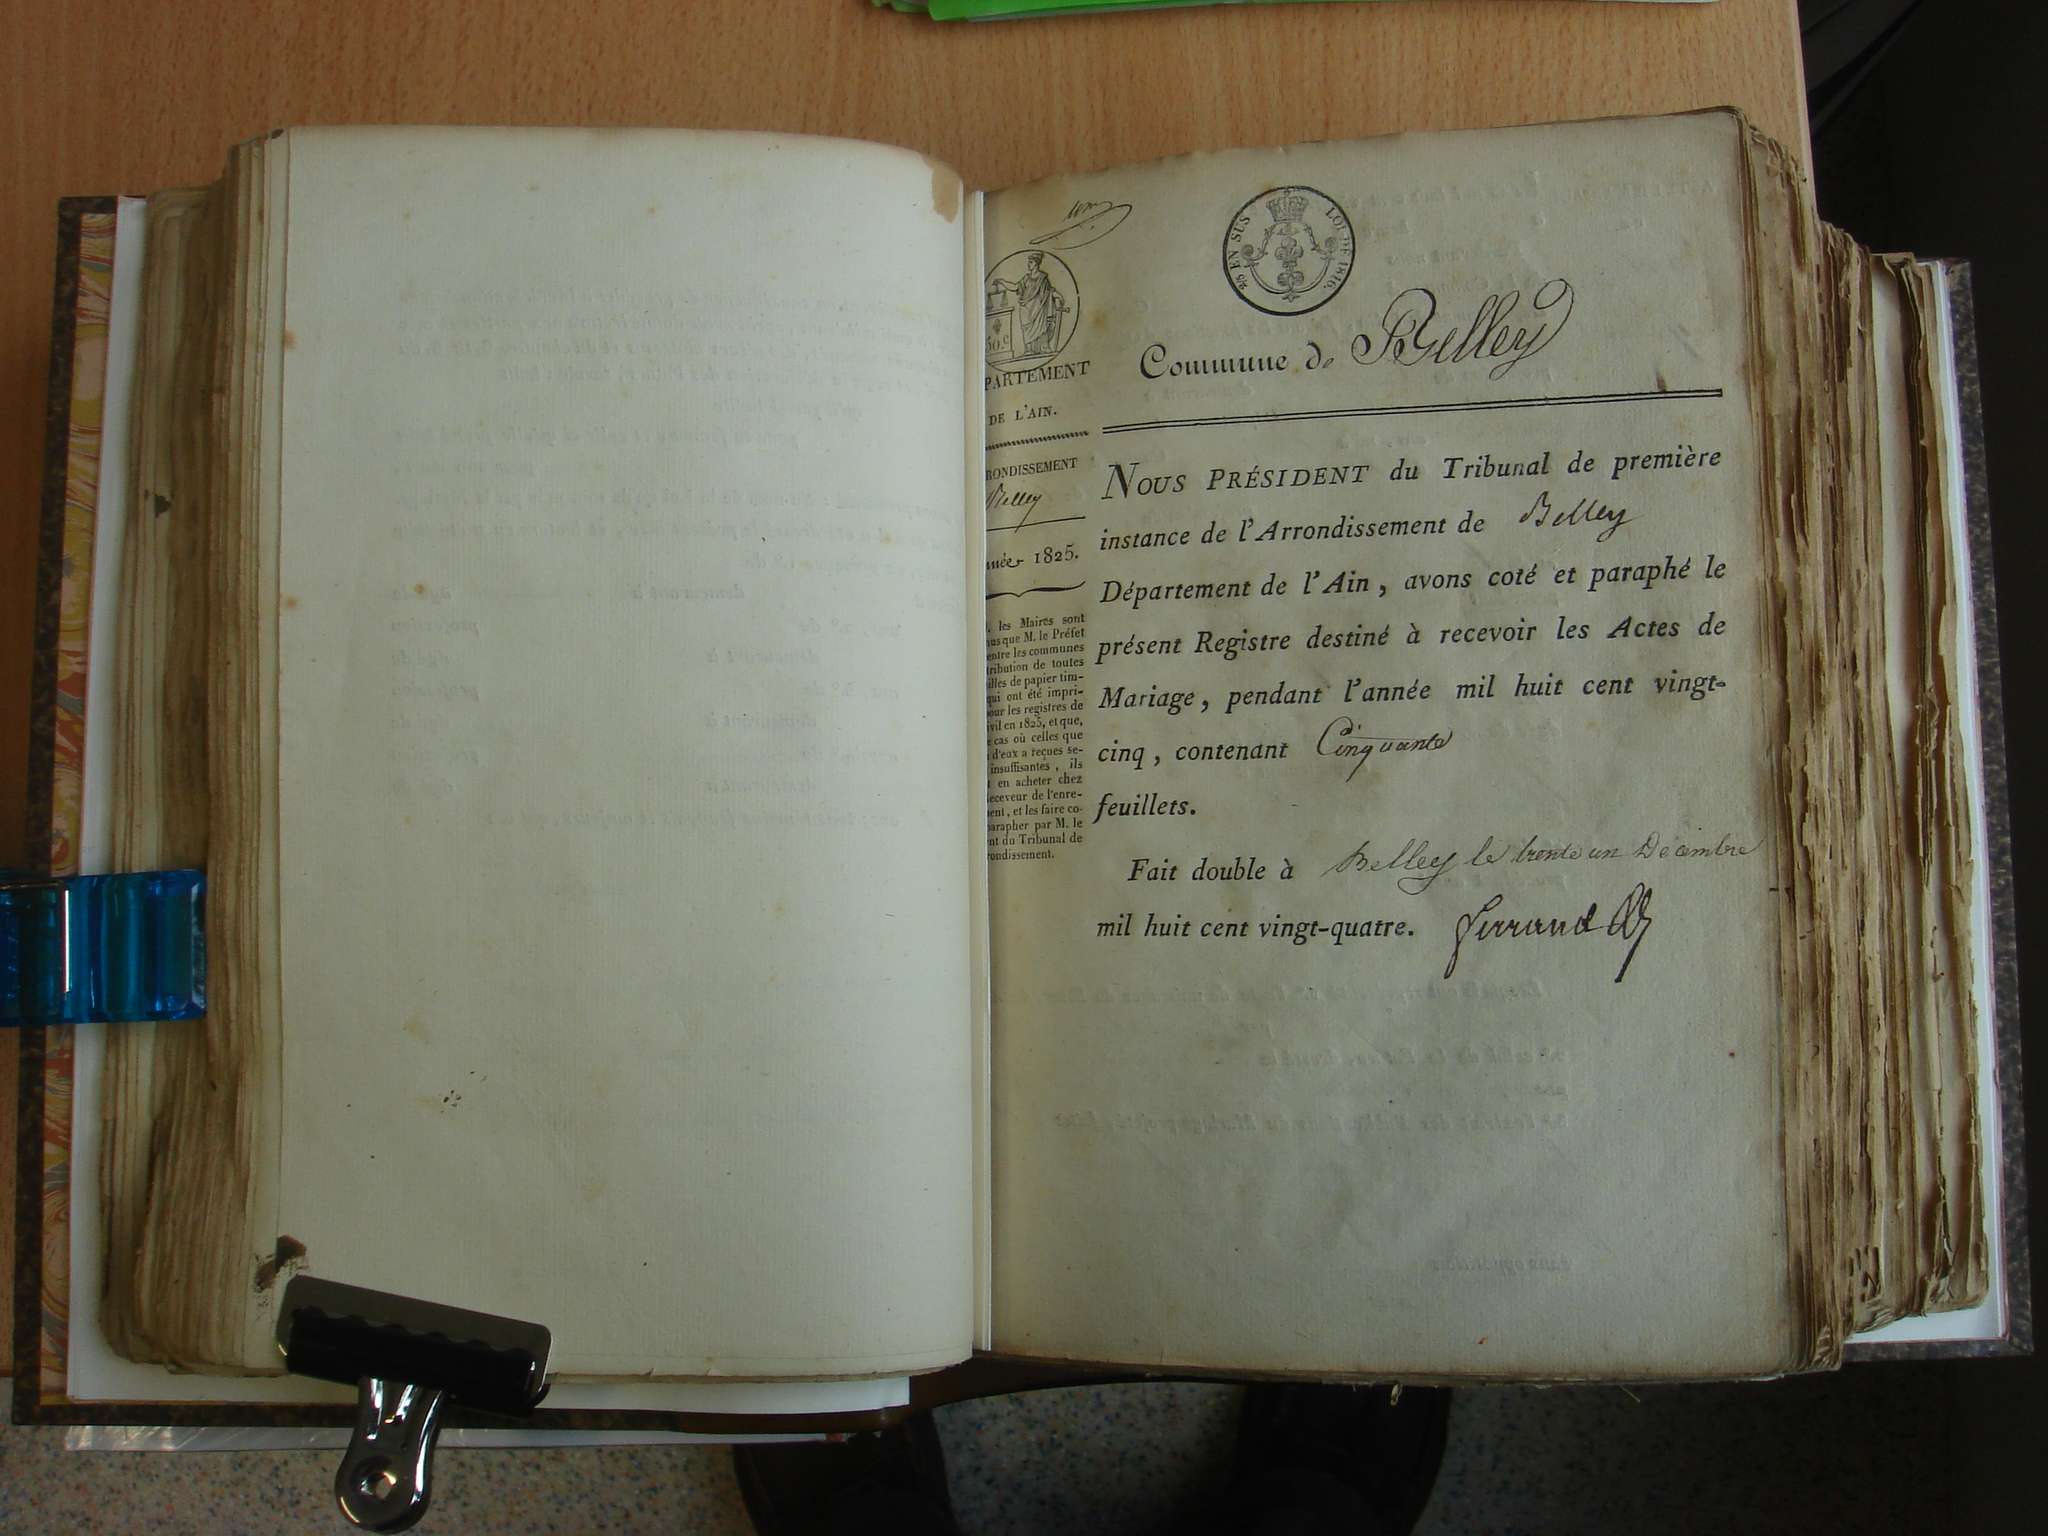 ⅒ EN SUS LOI DE 1816.
50.c
PARTEMENT
DE L'AIN.
RONDISSEMENT
Belley
née 1825.
. les Maires sont
us que M. le Préfet
entre les communes
tribution de toutes
illes de papier tim-
qui ont été impri-
our les registres de
ivil en 1825, et que,
e cas où celles que
d'eux a reçues se-
insuffisantes, ils
t en acheter chez
eceveur de l'enre-
ent, et les faire co-
parapher par M. le
nt du Tribunal de
rondissement.
Commune de Belley
NOUS PRÉSIDENT du Tribunal de première
instance de l'Arrondissement de Belley
Département de l'Ain, avons coté et paraphé le
présent Registre destiné à recevoir les Actes de
Mariage, pendant l'année mil huit cent vingt-
cinq, contenant Cinquante
feuillets.
Fait double à Belley le trente un Décembre
mil huit cent vingt-quatre. Ferrand